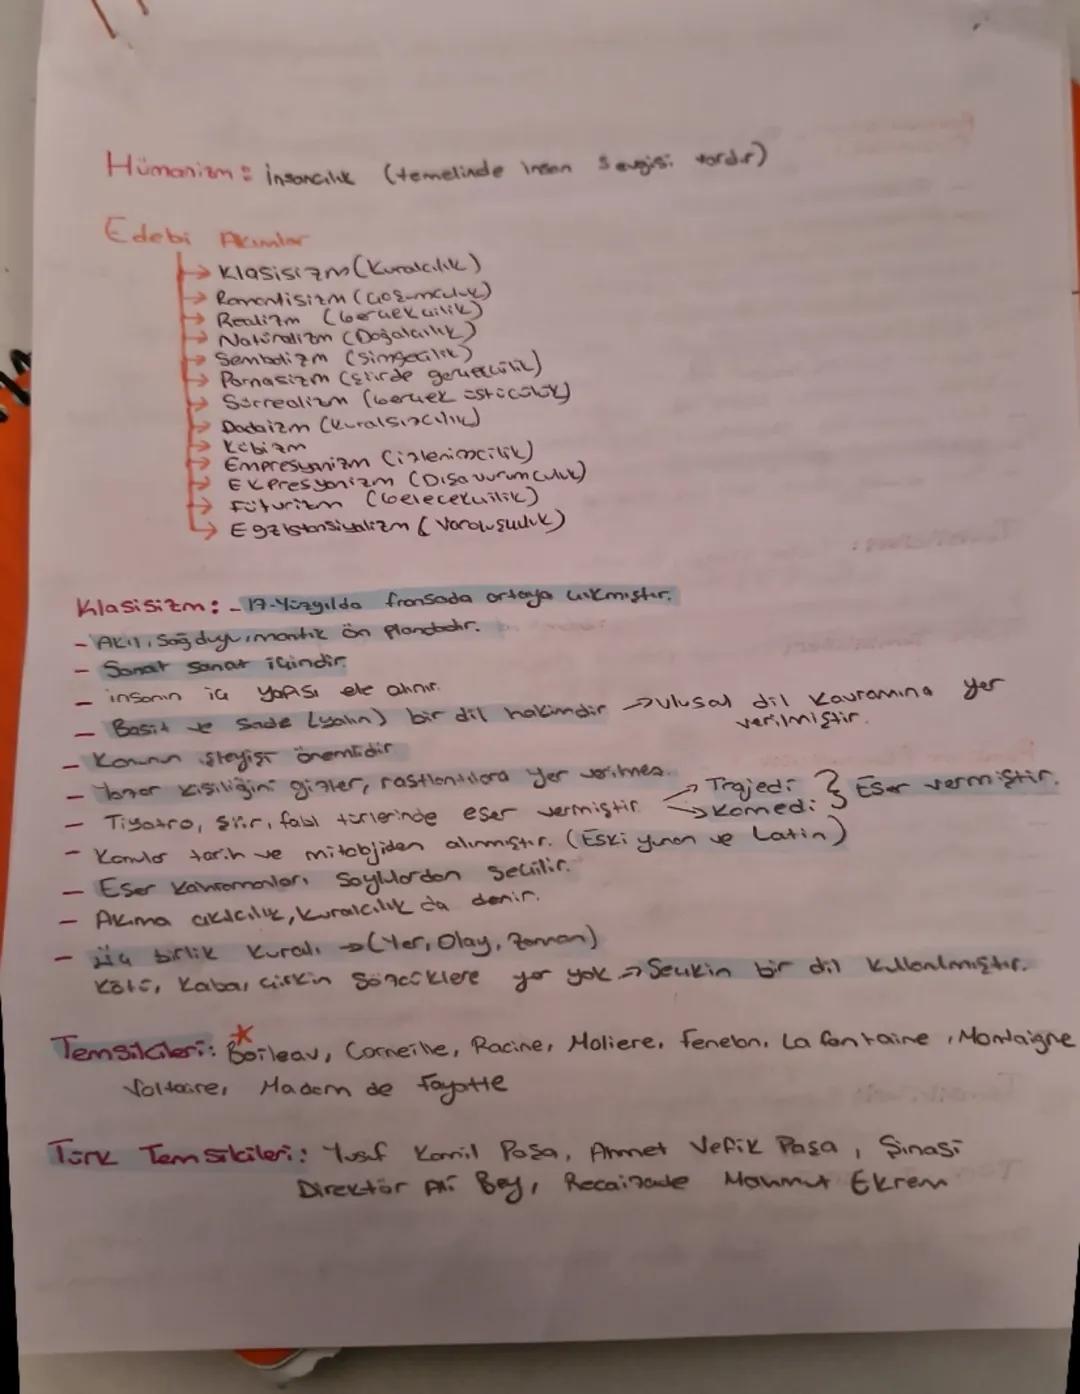 Hümanizm: İnsancılık (temelinde insan sevgisi vardır)
Edebi Akımlar
→ Klasisizm (Kuralcılık)
→ Romantisizm (Coşumculuk)
→ Realizm (Gerçekçilik)
→ Natüralizm (Doğalcılık)
→ Sembolizm (Simgecilik)
→ Parnasizm (şiirde gerçekçilik)
→ Sürrealizm (Gerçek üstücülük)
→ Dadaizm (Kuralsızcılık)
→ Kübizm
→ Empresyonizm (izlenimcilik)
→ Ekpresyonizm (Dışavurumculuk)
→ Fütürizm (Gelecekçilik)
→ Egzistansiyalizm (Varoluşculuk)
Klasisizm: - 17.Yüzyılda fransada ortaya çıkmıştır.
- Akıl, Sağduyu, mantık ön plandadır.
- Sanat sanat içindir.
- insanın iç yapısı ele alınır.
- Basit ve Sade (yalın) bir dil hakimdir → ulusal dil kavramına yer
verilmiştir.
- Konunun işleyişi önemlidir
- Yazar kişiliğini gizler, rastlantılara yer verilmez.
- Tiyatro, şiir, fabl türlerinde eser vermiştir → Trajedi → Komedi } Eser vermiştir.
- Konular tarih ve mitolojiden alınmıştır. (Eski yunan ve Latin)
- Eser kahramanları Soylulardan seçilir.
- Akıma akılcılık, kuralcılık da denir.
- üç birlik kuralı → (Yer, Olay, Zaman)
Kötü, Kaba, çirkin Sözcüklere yer yok → Seçkin bir dil kullanılmıştır.
Temsilcileri: Boileau, Corneille, Racine, Moliere, Fenelon, La fontaine, Montaigne
Voltaire, Madam de Fayette
Türk Temsilcileri: Yusuf Kamil Paşa, Ahmet Vefik Paşa, Şinasi
Direktör Ali Bey, Recaizade Mahmut Ekrem